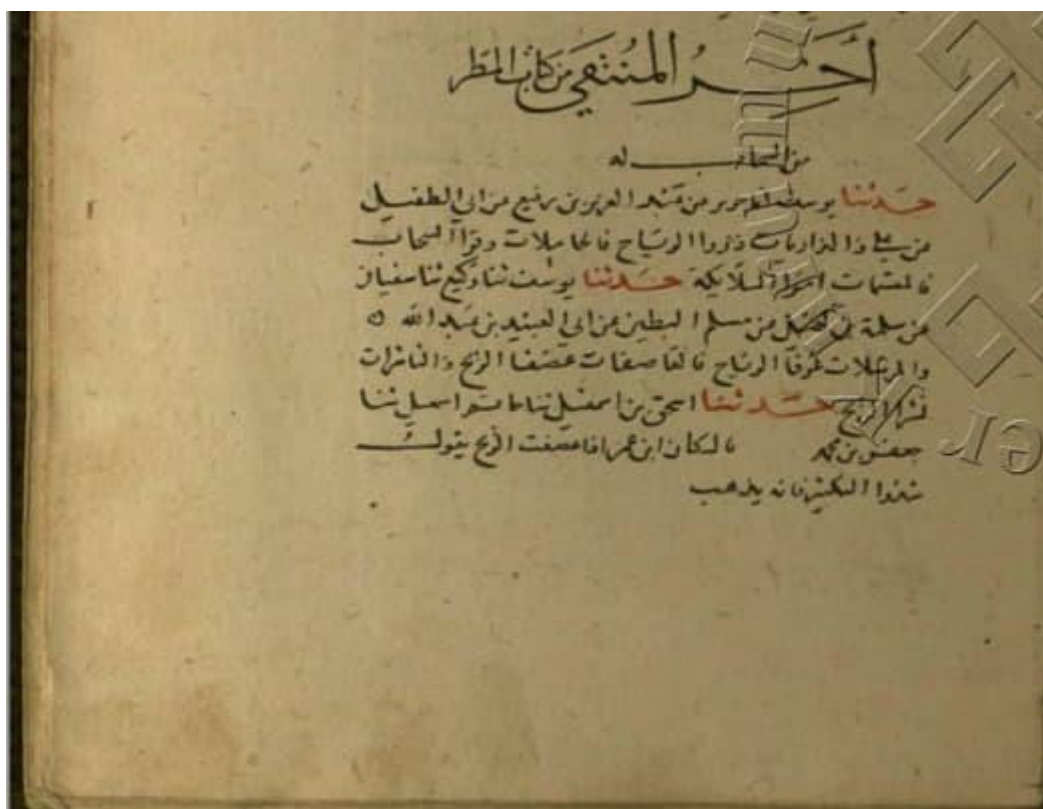 آخر المنتقى من كتاب المطر
من السحاب له
حدثنا يوسف جرير عن عبد العزيز بن رفيع عن ابي الطفيل
عن علي والذاريات ذروا الرياح فالحاملات وقرا السحاب
فالمقسمات امرا الملائكة حدثنا يوسف ثنا وكيع ثنا سفيان
عن سلمة بن كهيل عن مسلم البطين عن ابي العبيدين عبد الله ه
والمرسلات عرفا الرياح فالعاصفات عصفا الريح والناشرات
نشرا الريح حدثنا اسحق بن اسمعيل ثنا اسمعيل ثنا
جعفر بن محمد قال كان ابن عمر اذا عصفت الريح يقول
شدوا التكبير فانه يذهب
er